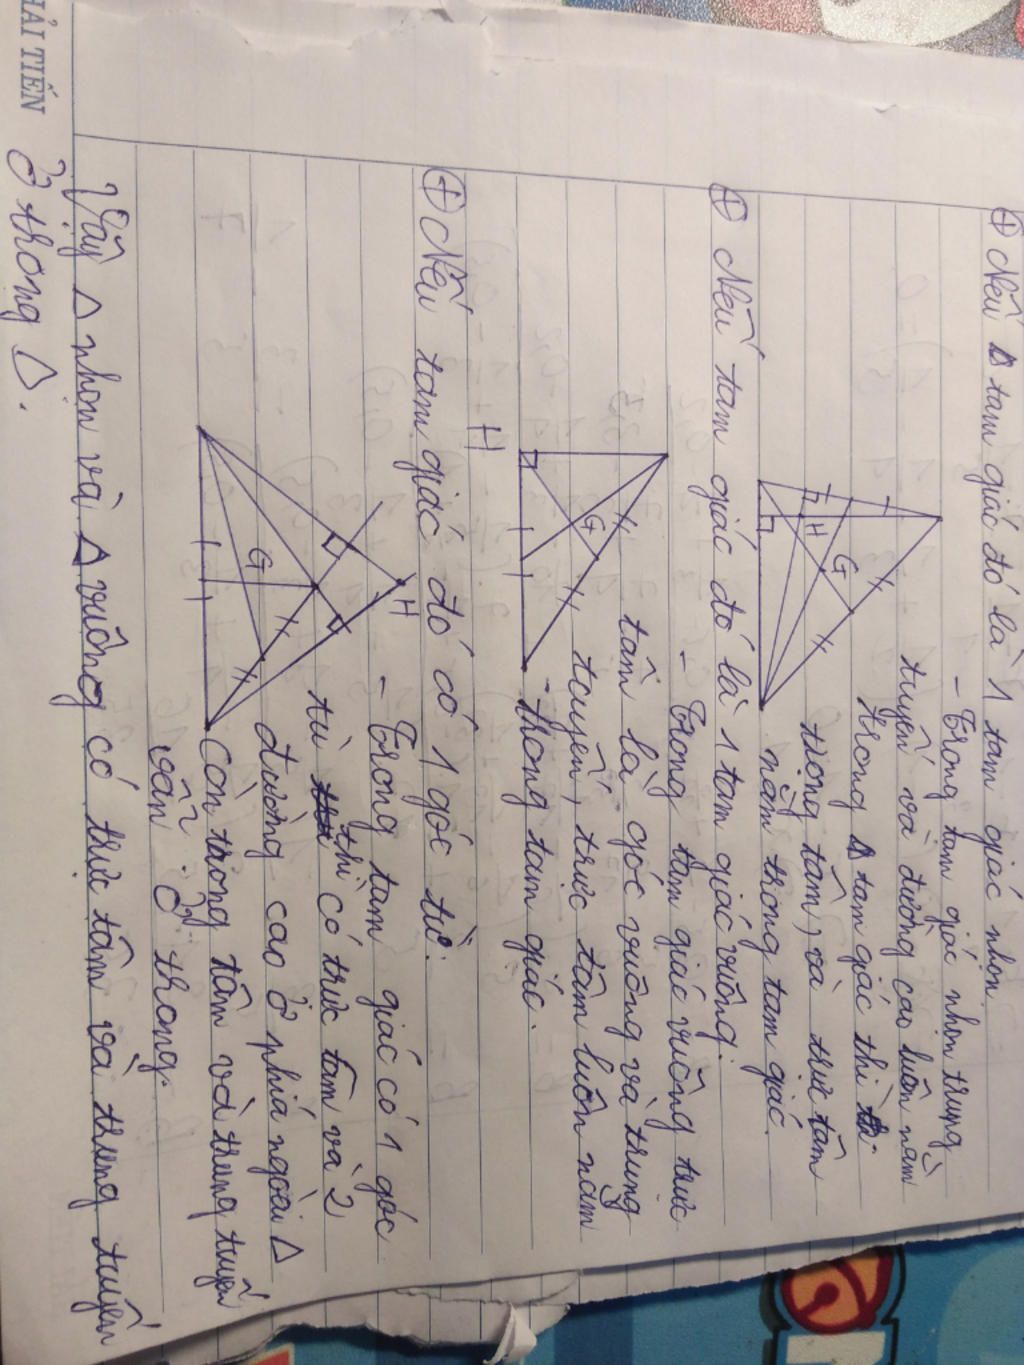 + Nếu tam giác đó là 1 tam giác nhọn
- Trong tam giác nhọn trung
tuyến và đường cao luôn nằm
trong tam giác thì
trọng tâm, và trực tâm
nằm trong tam giác.
H
G
+ Nếu tam giác đó là 1 tam giác vuông:
- Trong tam giác vuông trực
tâm là góc vuông và trung
tuyến, trực tâm luôn nằm
trong tam giác.
G
H
+ Nếu tam giác đó có 1 góc tù:
- Trong tam giác có 1 góc
tù thì có trực tâm và 2
đường cao ở phía ngoài Δ
Còn trong tâm và trung tuyến
vẫn ở trong.
H
G
Vậy Δ nhọn và Δ vuông có trực tâm và trung tuyến
ở trong Δ.
HẢI TIẾN